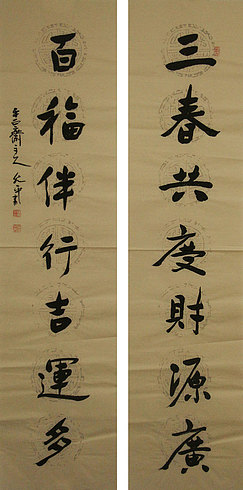 三春共度財源廣
百福伴行吉運多